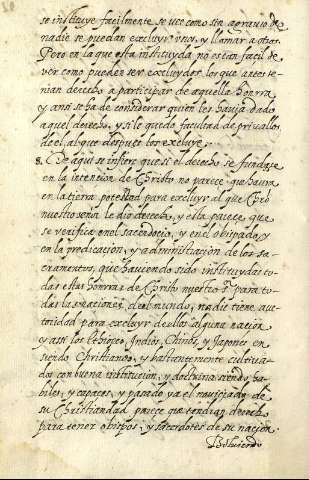 se instituye facilmente se vee como sin agravio de
nadie se puedan excluyr unos, y llamar a otros.
Pero en la que esta instituyda no es tan facil de
ver como pueden ser excluydos los que antes te-
nian derecho a participar de aquella honrra,
y ansi se ha de considerar quien les havia dado
aquel derecho, y si le quedo facultad de privallos
de el, al que despues los excluye.
8. De aqui se infiere que si el derecho se fundase
en la intencion de Christo no parece que havra
en la tierra potestad para excluyr al que Chro
nuestro señor le dio derecho, y esto parece que
se verifica en el sacerdocio, y en el obispado, y
en la predicacion, y administracion de los sa-
cramentos, que haviendo sido instituydas to-
das estas honrras de Christo nuestro Sr para to-
das las naciones del mundo, nadie tiene au-
toridad para excluyr dellas alguna nacion
y assi los Ethiopes, Indios, Chinos, y Japones en
siendo Christianos, y bastantemente cultiva-
dos con buena institucion, y doctrina siendo ha-
biles, y capaces, y pasado ya el noviciado de
su Christiandad parece que tendran derecho
para tener obispos, y sacerdotes de su nacion.
Bolviendo